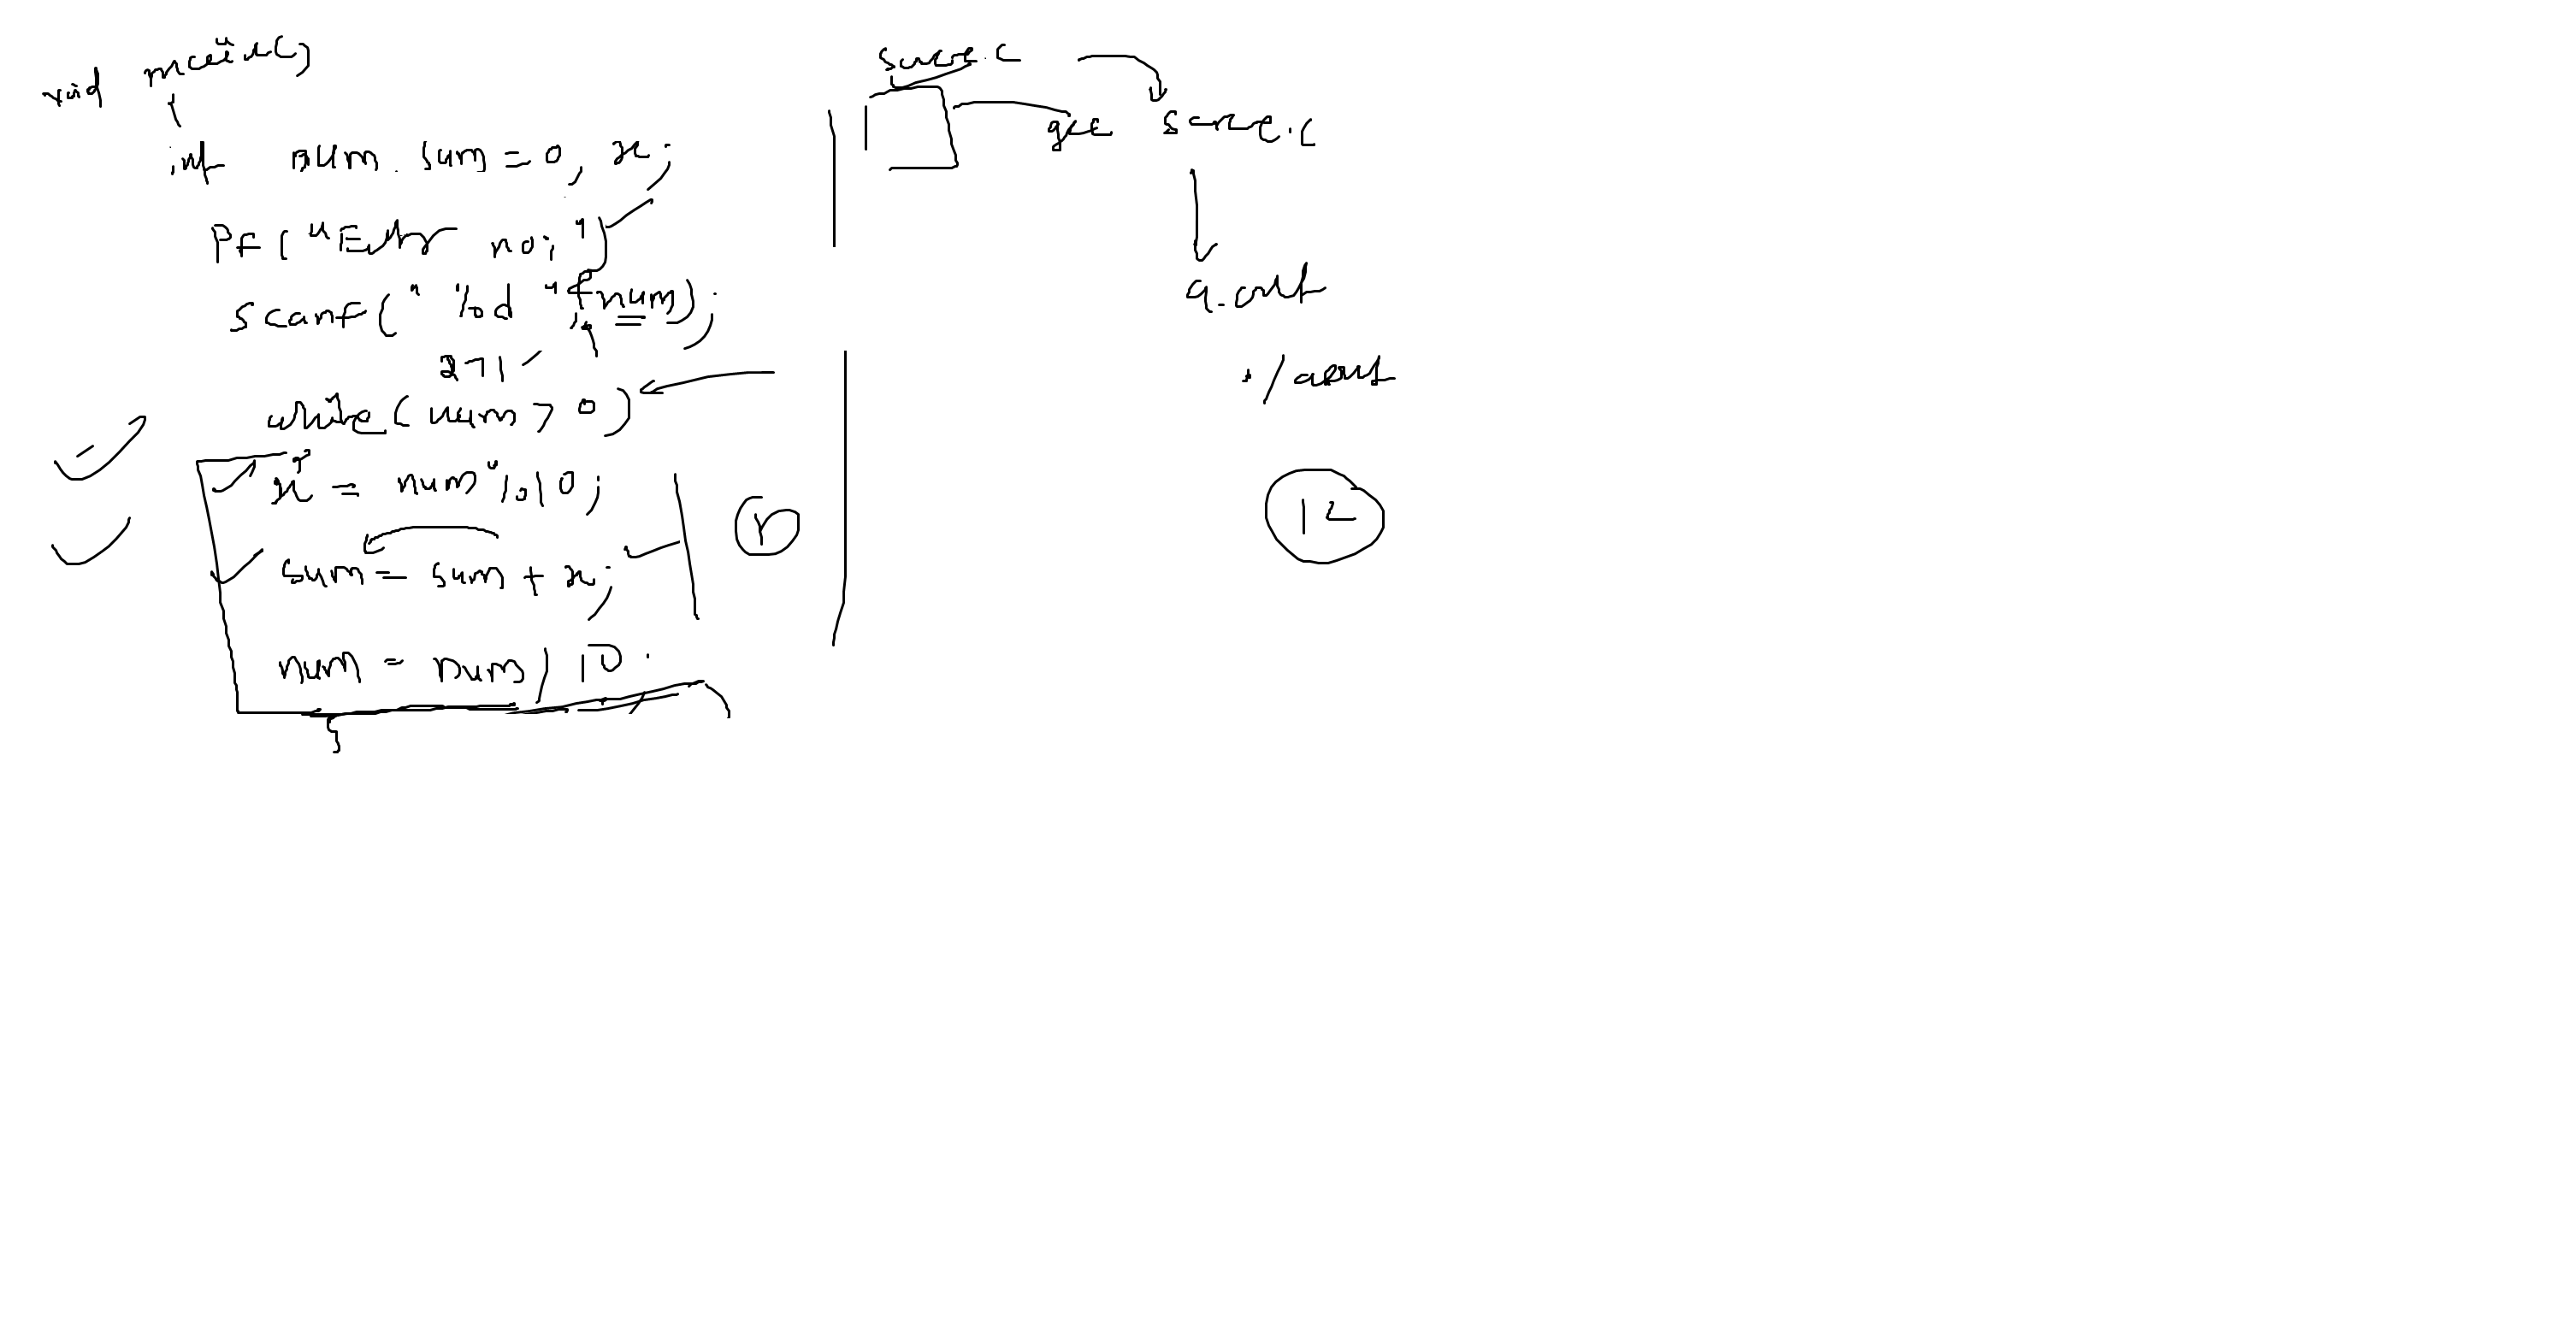 void main()
{
int num, sum = 0, x;
PF("Enter no;")
scanf("%d", &num);
271
while(num > 0)
x = num % 10;
sum = sum + x;
num = num / 10
}
source.c
gcc source.c
a.out
./a.out
12